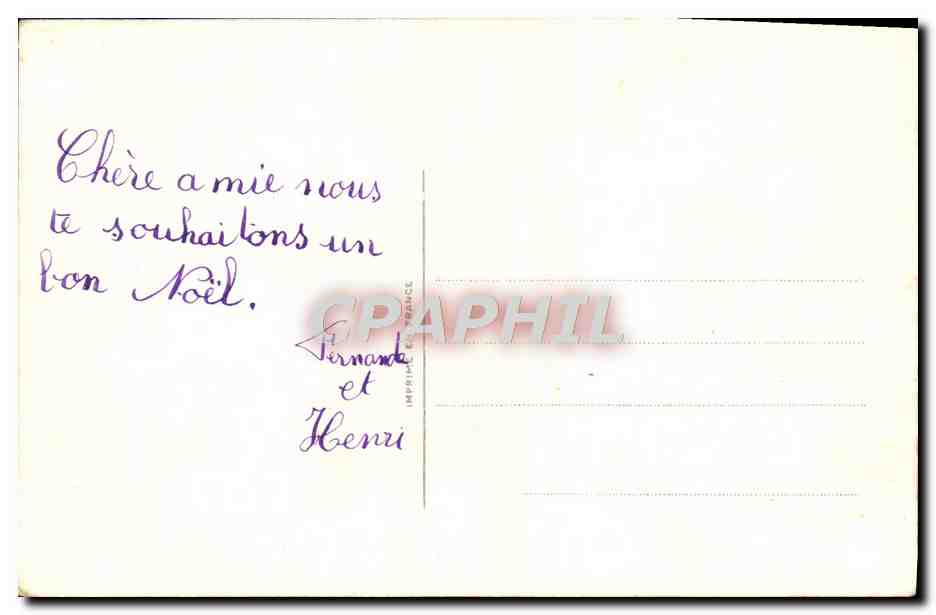 Chère amie nous
te souhaitons un
bon Noël.
Fernande
et
Henri
IMPRIME EN FRANCE
CPAPHIL